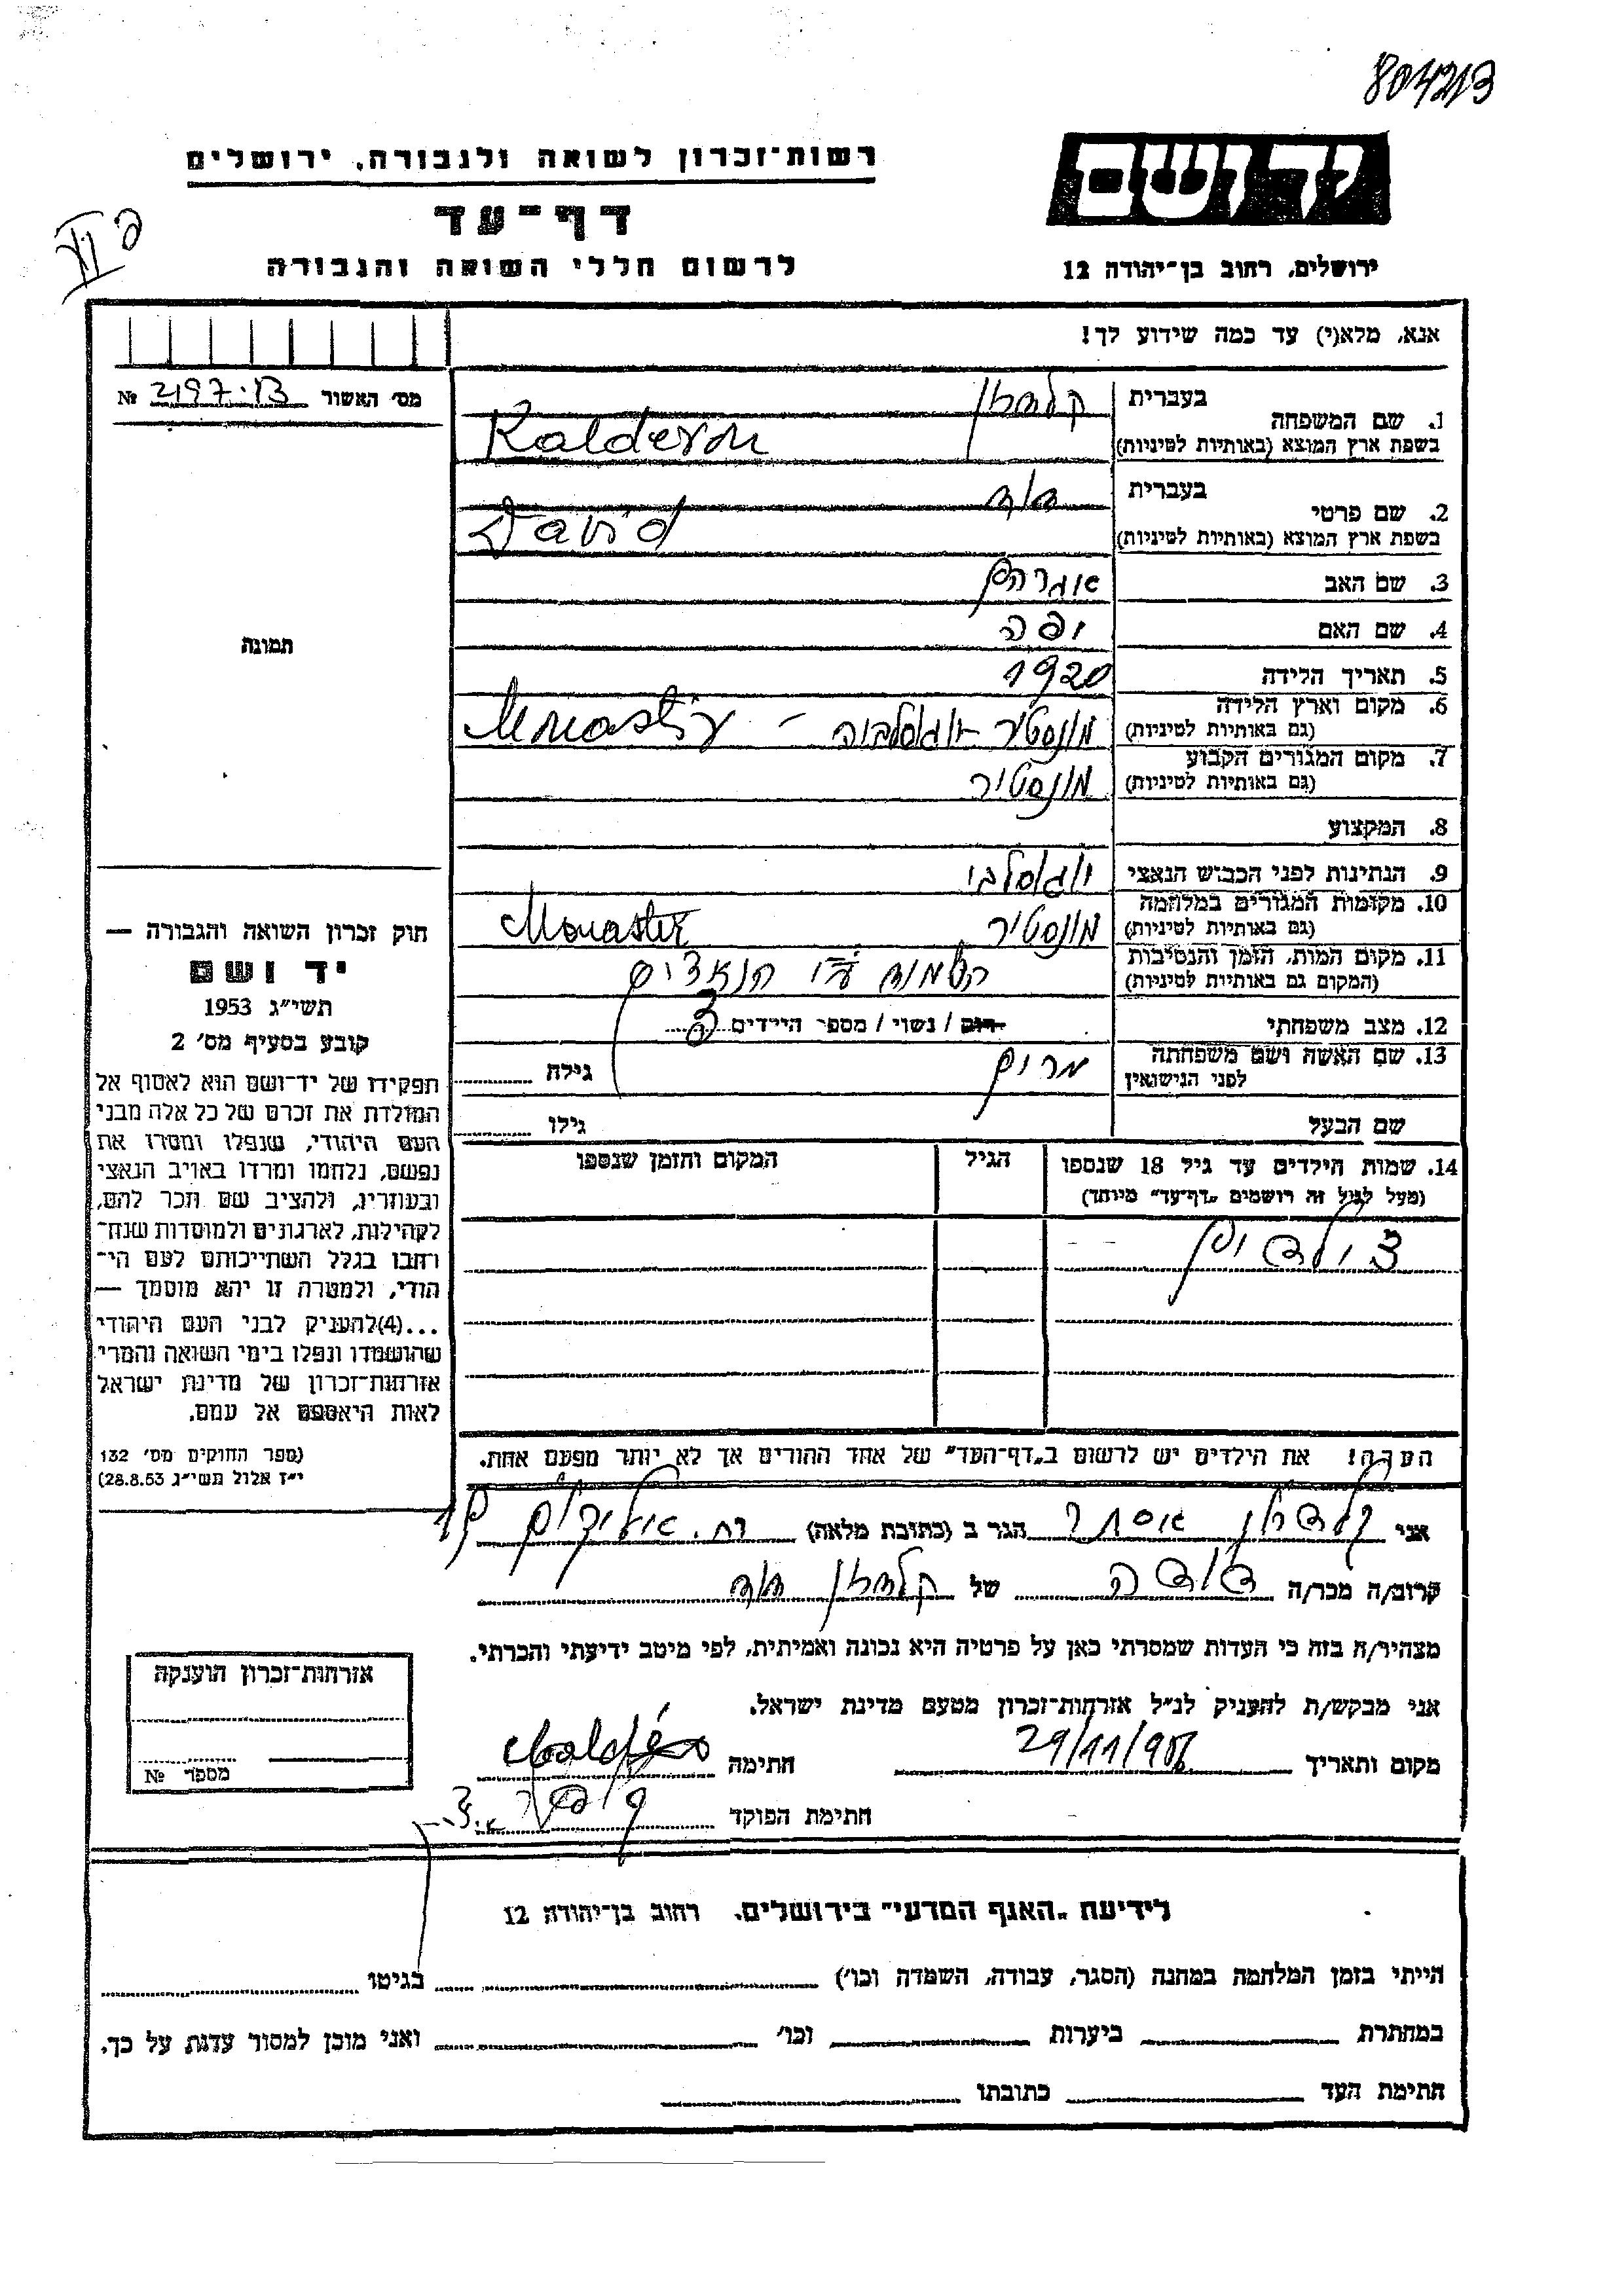 804213
יד ושם
רשות־זכרון לשואה ולגבורה, ירושלים
דף־עד
ירושלים, רחוב בן־יהודה 12
לרשום חללי השואה והגבורה
אנא, מלא(י) עד כמה שידוע לך!
מס׳ האשור № 2197.13
1. שם המשפחה
בעברית קלדרון
בשפת ארץ המוצא (באותיות לטיניות) Kalderon
2. שם פרטי
בעברית דוד
בשפת ארץ המוצא (באותיות לטיניות) David
3. שם האב אברהם
4. שם האם יפה
תמונה
5. תאריך הלידה 1920
6. מקום וארץ הלידה
(גם באותיות לטיניות) מונסטיר יוגוסלביה -
7. מקום המגורים הקבוע
(גם באותיות לטיניות) מונסטיר
8. המקצוע
9. הנתינות לפני הכבוש הנאצי יוגוסלבי
10. מקומות המגורים במלחמה
(גם באותיות לטיניות) מונסטיר Monastir
11. מקום המות, הזמן והנסיבות
(המקום גם באותיות לטיניות) הנאצים
12. מצב משפחתי רוק / נשוי / מספר הילדים 3
13. שם האשה ושם משפחתה
לפני הנישואין מרים גילה
שם הבעל גילו
14. שמות הילדים עד גיל 18 שנספו
(מעל לגיל זה רושמים „דף־עד” מיוחד)
הגיל
המקום והזמן שנספו
3 ילדים
הערה! את הילדים יש לרשום ב„דף־העד” של אחד ההורים אך לא יותר מפעם אחת.
חוק זכרון השואה והגבורה —
יד ושם
תשי״ג 1953
קובע בסעיף מס׳ 2
תפקידו של יד־ושם הוא לאסוף אל
המולדת את זכרם של כל אלה מבני
העם היהודי, שנפלו ומסרו את
נפשם, נלחמו ומרדו באויב הנאצי
ובעוזריו, ולהציב שם וזכר להם,
לקהילות, לארגונים ולמוסדות שנח־
רבו בגלל השתייכותם לעם הי־
הודי, ולמטרה זו יהא מוסמך —
...(4)להעניק לבני העם היהודי
שהושמדו ונפלו בימי השואה והמרי
אזרחות־זכרון של מדינת ישראל
לאות היאספם אל עמם.
(ספר החוקים מס׳ 132
י״ז אלול תשי״ג 28.8.53)
אני קלדרון אסתר הגר ב (כתובת מלאה) רח.
קרוב/ה מכר/ה דודה של קלדרון דוד
מצהיר/ה בזה כי העדות שמסרתי כאן על פרטיה היא נכונה ואמיתית, לפי מיטב ידיעתי והכרתי.
אני מבקש/ת להעניק לנ״ל אזרחות־זכרון מטעם מדינת ישראל.
מקום ותאריך חתימה
חתימת הפוקד
אזרחות־זכרון הוענקה
מספר №
לידיעת „האגף המדעי” בירושלים, רחוב בן־יהודה 12
הייתי בזמן המלחמה במחנה (הסגר, עבודה, השמדה וכו׳) בגיטו
במחתרת ביערות וכו׳ ואני מוכן למסור עדות על כך.
חתימת העד כתובתו